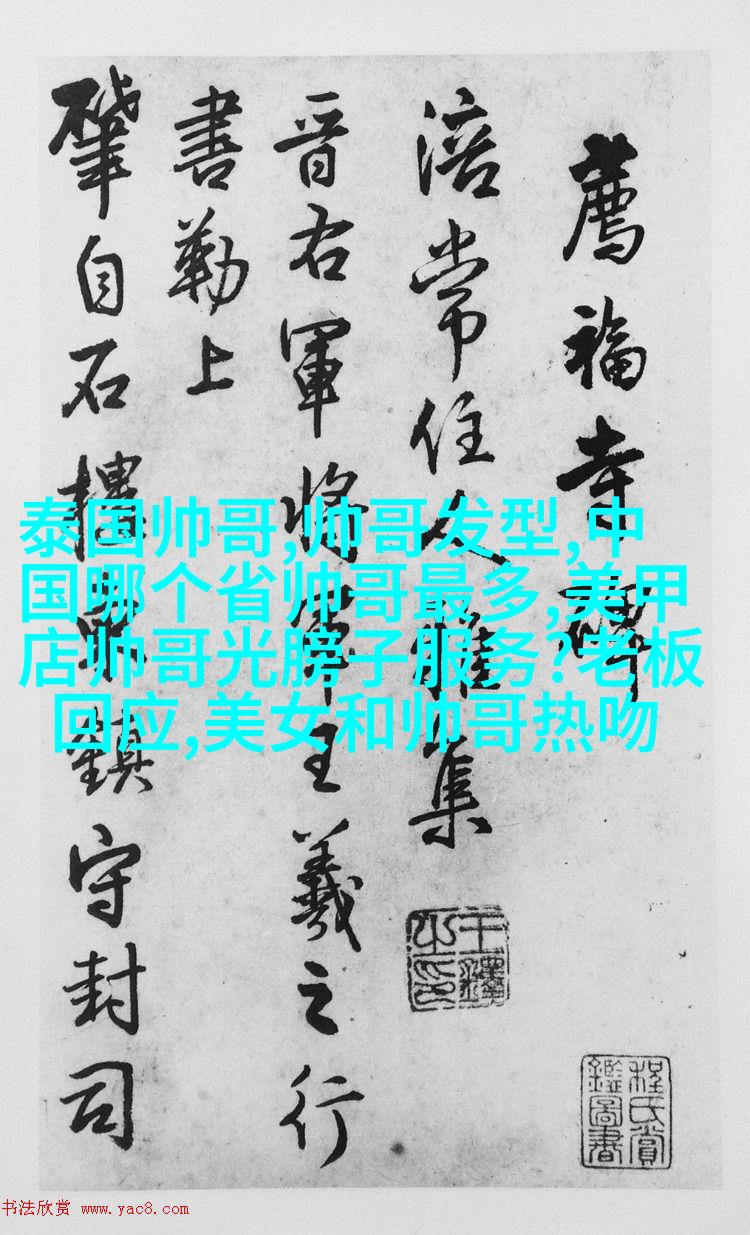 薦福寺碑
涪常住人雜集
晉右軍將軍王羲之行
書勒上
肇自石樓鎮守封司
王鐸之印
程氏賞鑑圖書
泰国帅哥,帅哥发型,中
国哪个省帅哥最多,美甲
店帅哥光膀子服务?老板
回应,美女和帅哥热吻
书法欣赏 www.yac8.com